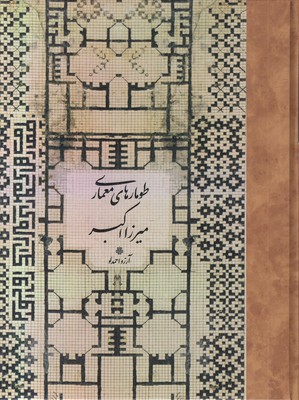 طومارهای معماری
میرزا اکبر
آرزو احمدلو